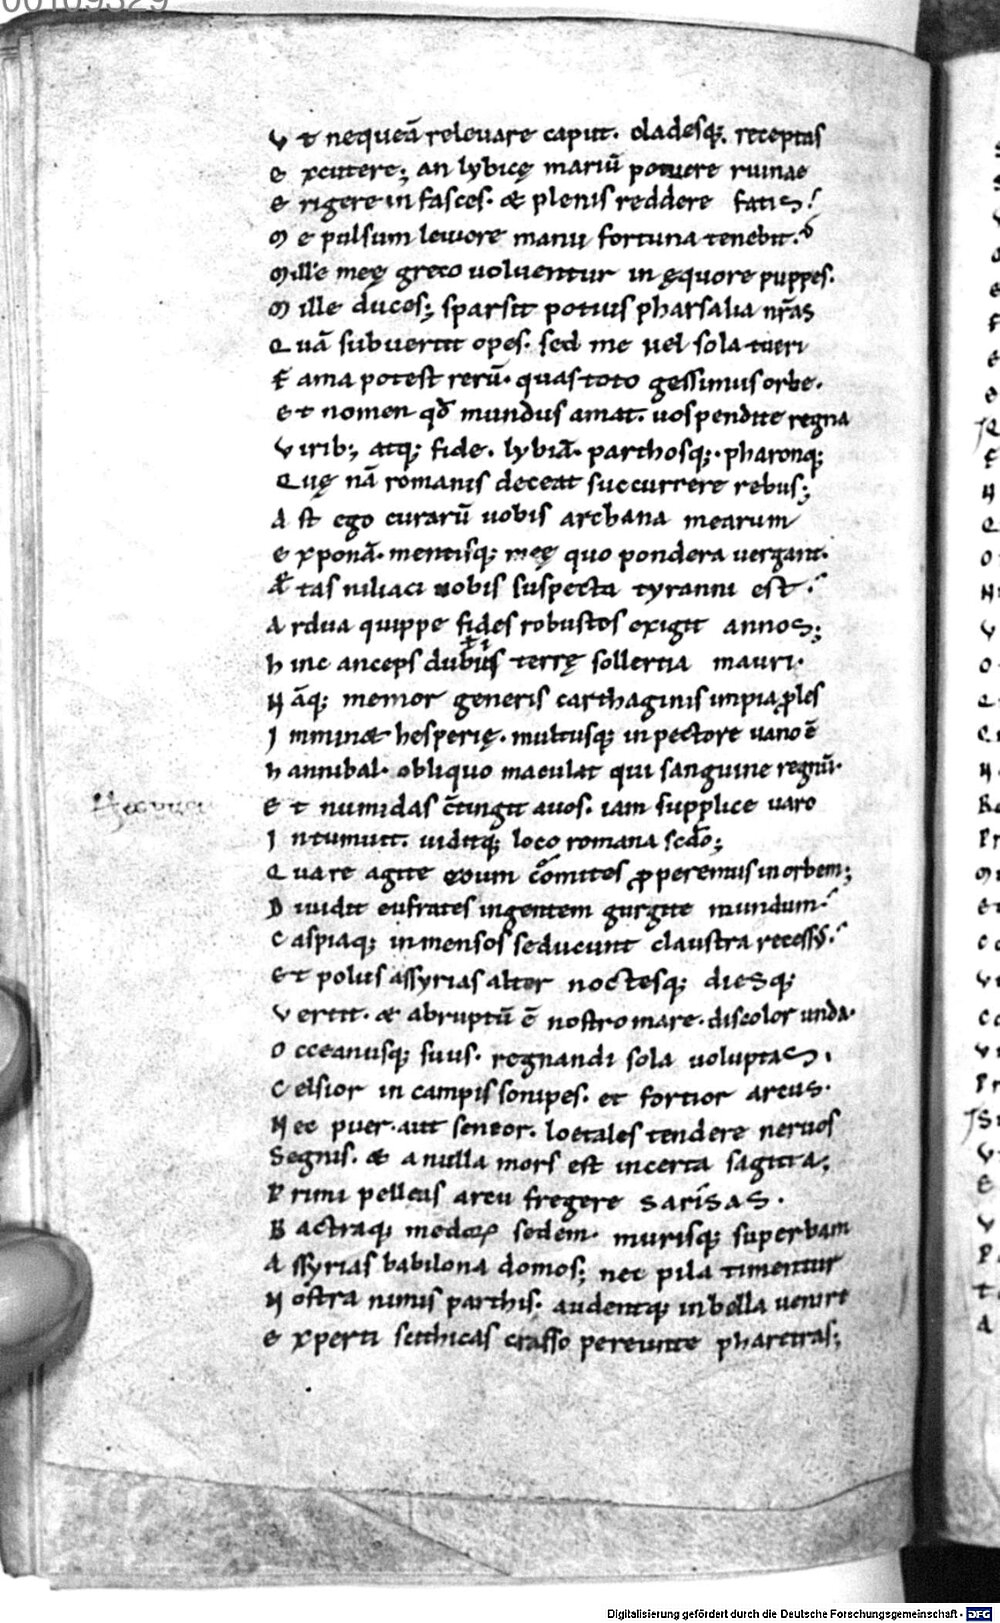 00109329
V t nequeā releuare caput. cladesq; receptas
E xcutere; an lybicę mariū potuere ruinae
E rigere in fasces. & plenis reddere fatis?
M e pulsum leuiore manu fortuna tenebit.
M ille meę greco uoluentur in ęquore puppes.
M ille duces; sparsit potius pharsalia nr̄as
Q uā subuertit opes. sed me uel sola tueri
F ama potest rerū. quas toto gessimus orbe.
E t nomen qđ mundus amat. uos pendite regna
V irib; atq; fide. lybiā. parthosq;. pharonq;
Q uę nā romanis deceat succurrere rebus;
A st ego curarū uobis archana mearum
E xponā. mentisq; meę quo pondera uergant.
Æ tas niliaci uobis suspecta tyranni est.
A rdua quippe fides robustos exigit annos;
H inc anceps dubiis terrę sollertia mauri.
N āq; memor generis carthaginis impia ꝓles
I mminet hesperię. multusq; in pectore uano ē
H annibal. obliquo maculat qui sanguine regnū.
E t numidas c̄tingit auos. iam supplice uaro
I ntumuit. uiditq; loco romana scd̄o;
Q uare agite eoum comites ꝓperemus in orbem;
D iuidit eufrates ingentem gurgite mundum.
C aspiaq; inmensos seducunt claustra recess;
E t polus assyrias alter noctesq; diesq;
V ertit. & abruptū ē nostro mare. discolor unda.
O cceanusq; suus. regnandi sola uoluptas.
C elsior in campis sonipes. et fortior arcus.
N ec puer. aut senior. loetales tendere neruos
S egnis. & a nulla mors est incerta sagitta;
P rimi pelleas arcu fregere sarisas.
B actraq; medoꝝ sedem. murisq; superbam
A ssyrias babilona domos; nec pila timentur
N ostra nimis parthis. audentq; in bella uenire
E xperti scithicas crasso pereunte pharetras;
Digitalisierung gefördert durch die Deutsche Forschungsgemeinschaft - DFG